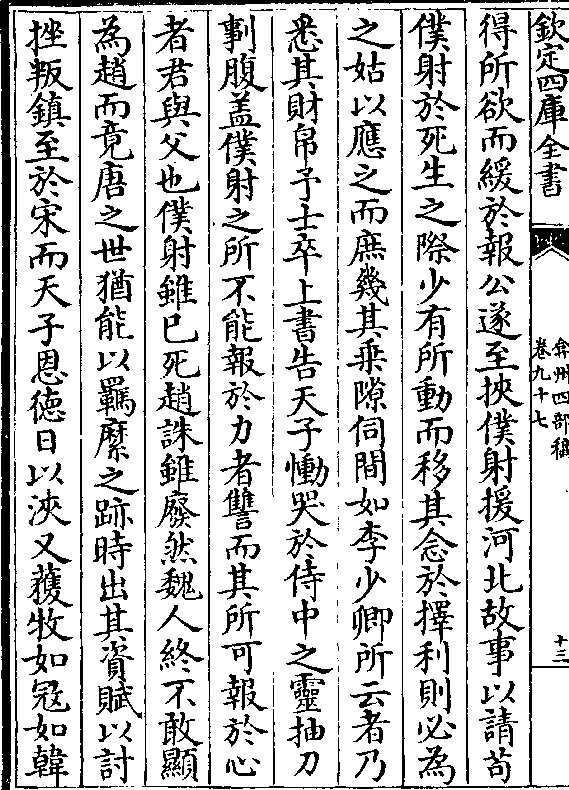 欽定四庫全書
弇州四部稿
卷九十七
十三
得所欲而緩於報公遂至挾僕射援河北故事以請苟
僕射於死生之際少有所動而移其念於擇利則必為
之姑以應之而庶幾其乗隙伺間如李少卿所云者乃
悉其財帛予士卒上書告天子慟哭於侍中之靈抽刀
剚腹盖僕射之所不能報於力者讐而其所可報於心
者君與父也僕射雖已死趙誅雖廢然魏人終不敢顯
為趙而竟唐之世猶能以羈縻之跡時出其資賦以討
挫叛鎮至於宋而天子恩徳日以浹又蒦牧如冦如韓